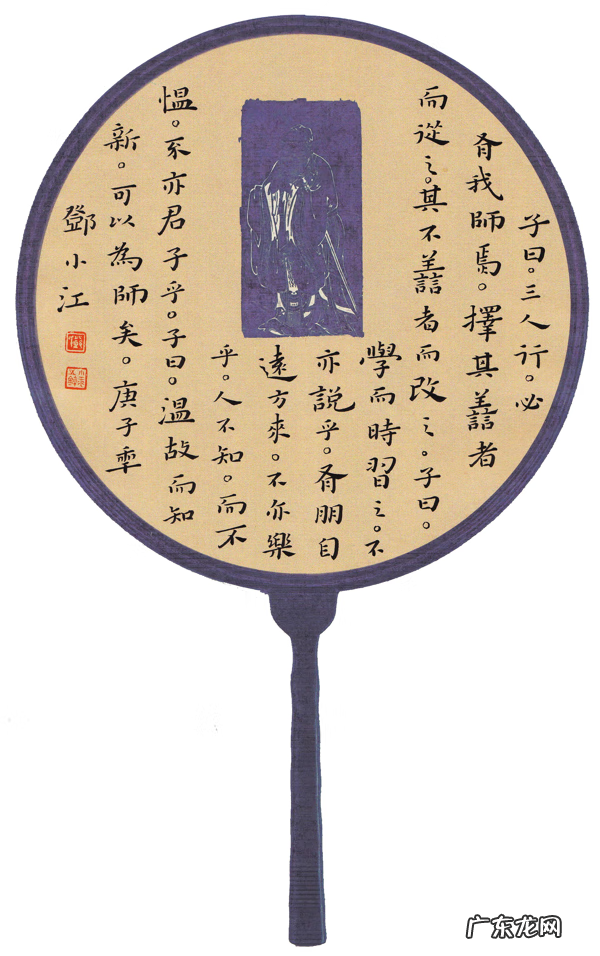 子曰。三人行。必
有我師焉。擇其譱者
而從之。其不譱者而改之。子曰。
學而時習之。不
亦說乎。有朋自
遠方來。不亦樂
乎。人不知。而不
愠。不亦君子乎。子曰。温故而知
新。可以為師矣。庚子秊
鄧小江
广东龙网